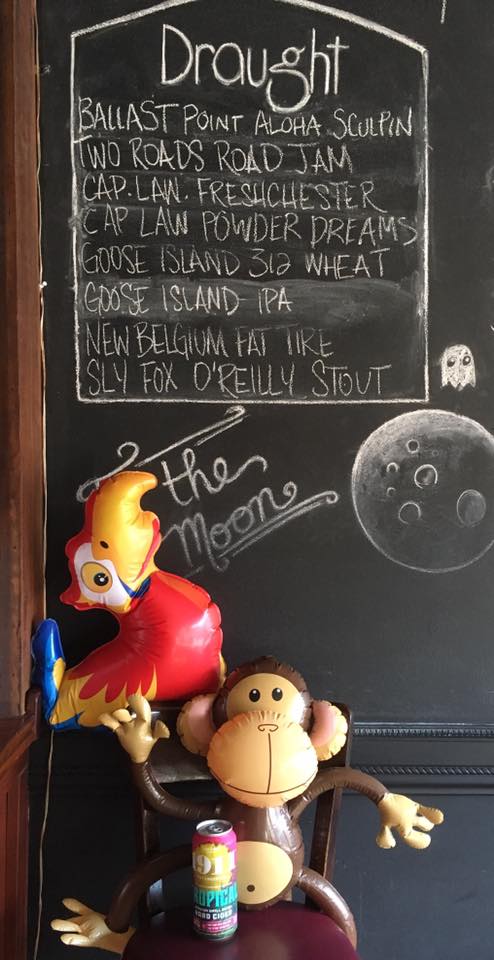 Draught
BALLAST POINT ALOHA SCULPIN
TWO ROADS ROAD JAM
CAP. LAW. FRESHCHESTER
CAP LAW POWDER DREAMS
GOOSE ISLAND 312 WHEAT
GOOSE ISLAND IPA
NEW BELGIUM FAT TIRE
SLY FOX O'REILLY STOUT
the
Moon
1911
TROPICAL
HARD CIDER